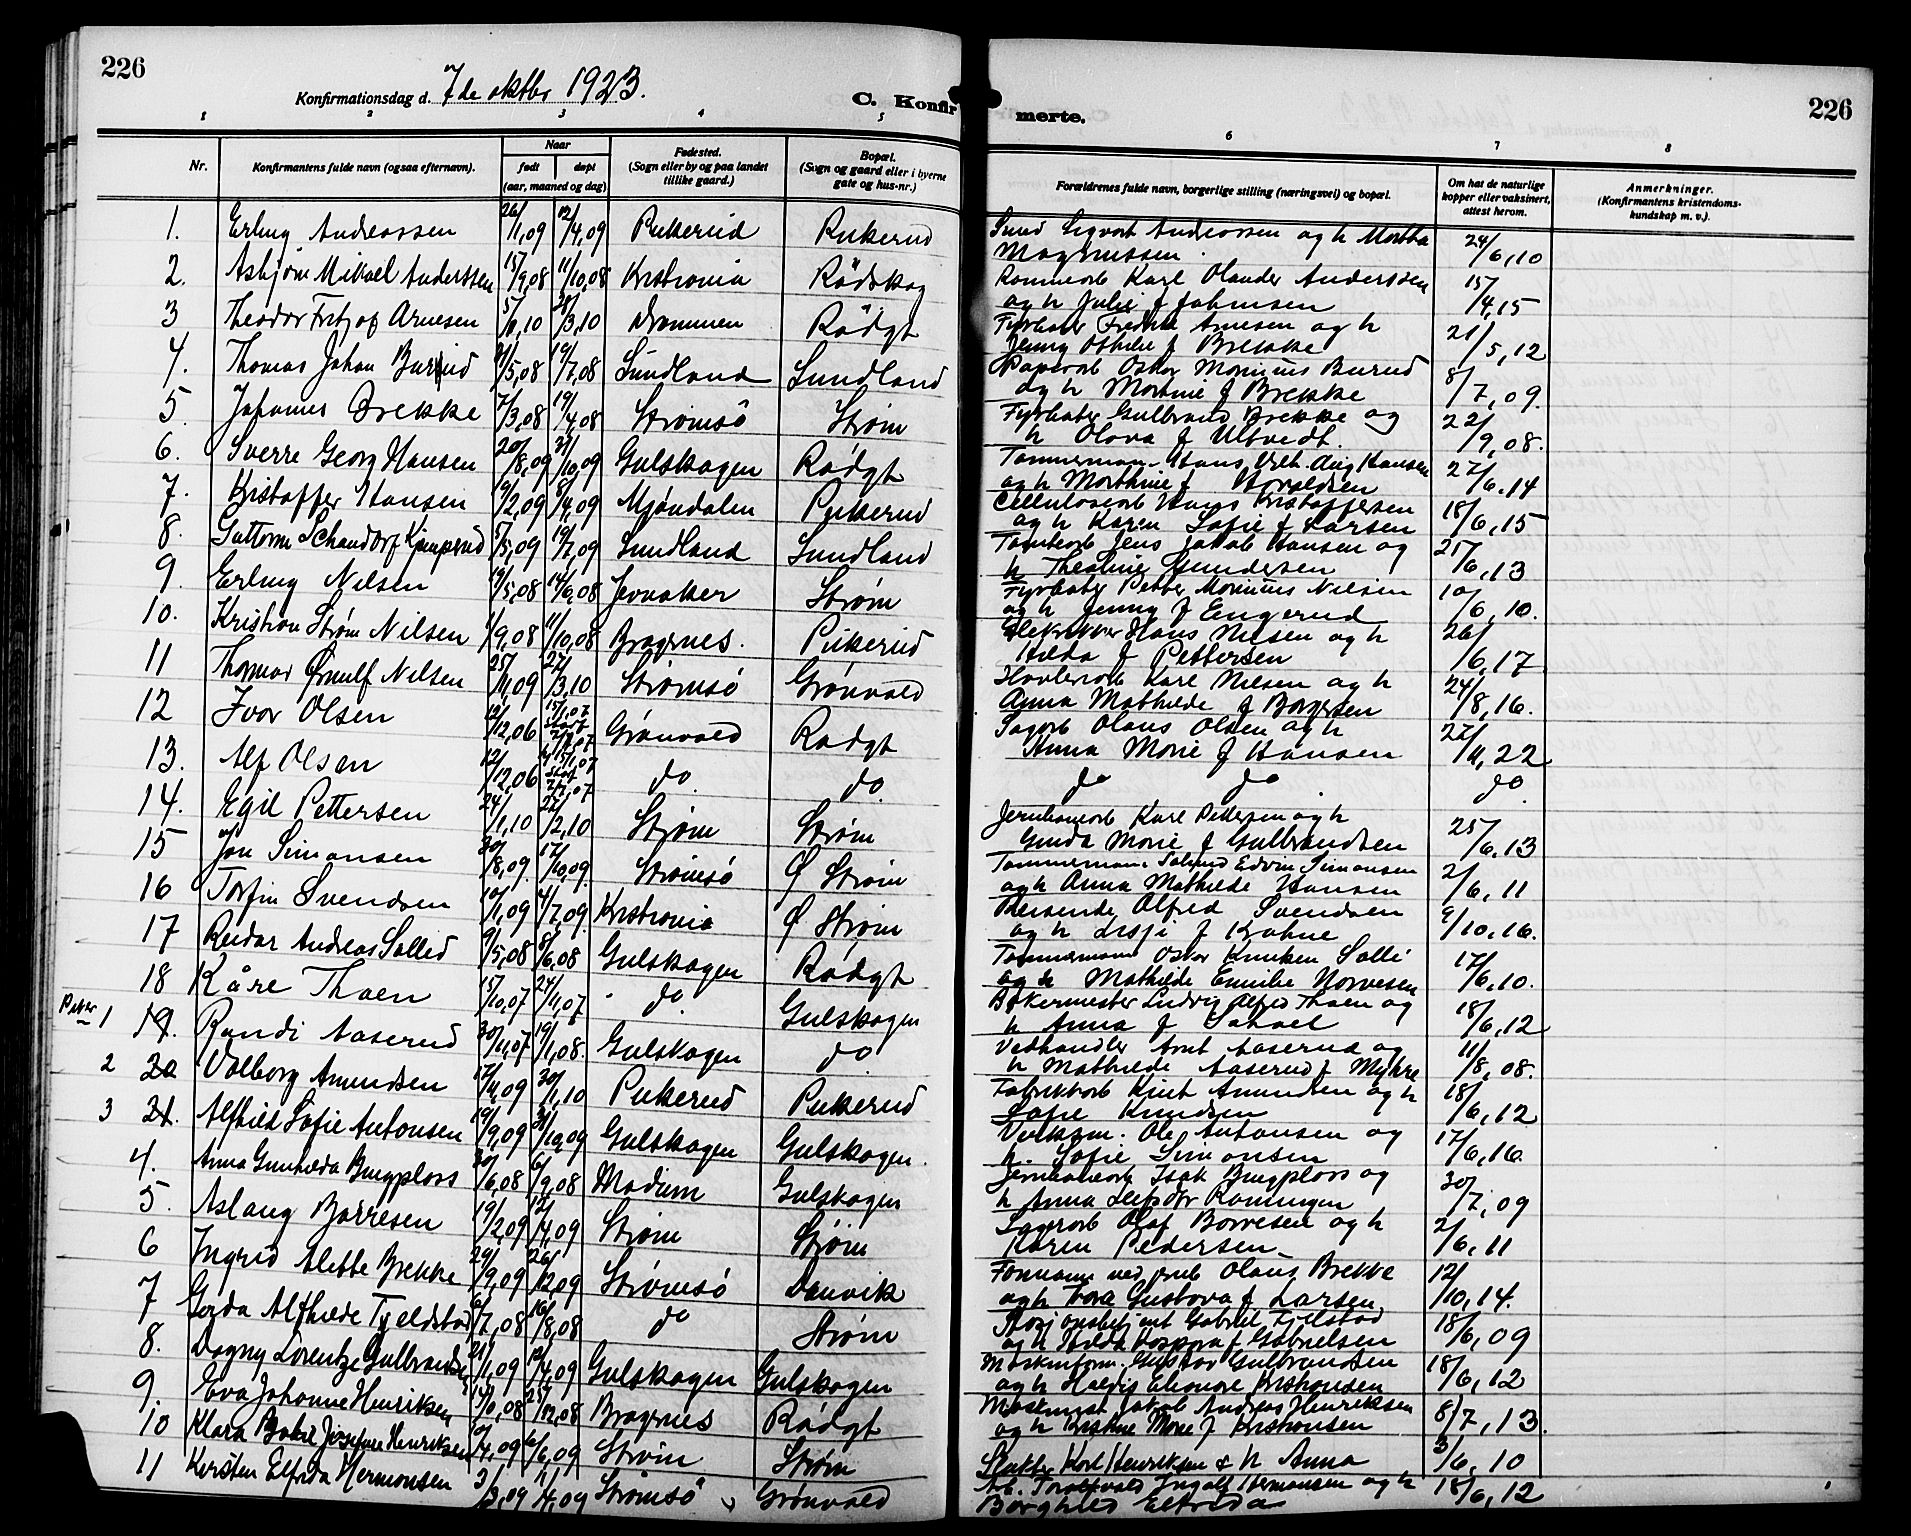 226
Konfirmationsdag d. 7de oktbr 1923.
C. Konfir
merte.
226
1 2 3 4 5 6 7 8
Nr.
Konfirmantens fulde navn (ogsaa efternavn).
Naar
født døpt
(aar, maaned og dag)
Fødested.
(Sogn eller by og paa landet
tillike gaard.)
Bopæl.
(Sogn og gaard eller i byerne
gate og hus-nr.)
Forældrenes fulde navn, borgerlige stilling (næringsvei) og bopæl.
Om hat de naturlige
kopper eller vaksinert,
attest herom.
Anmerkninger.
(Konfirmantens kristendoms-
kundskap m. v.).
1. Erling Andreassen 26/1,09 12/4,09 Pukerud Pukerud
Smed Sigvart Andreassen og h Martha
Magnussen. 24/6,10
2. Asbjørn Mikael Anderssen 15/9,08 11/10,08 Kristiania Rödskog
Karl Olander Anderssen
og h Julie f Johnsen 15/4,15
3 Theodor Fritjof Arnesen Drammen Rödgt
Fyrbøter Fredrik Arnesen og h
Jenny Othilie f Brekke 21/5,12
4. Thomas Johan Burud /5,08 19/7,08 Sundland Sundland
Papirarb Oskar Marinius Burud
og h Martine f Brekke 8/7,09.
5. Johannes Brekke 7/3,08 19/4,08 Strømsö Strøm
Fyrbøter Gulbrand Brekke og
h Olava f Ultvedt. 22/9,08.
6. Sverre Georg Hansen 20/8,09 31/10,09 Gulskogen Rødgt
Tømmerman Hans Vilh. Aug Hansen
og h Marthine f Haraldsen 27/6.14
7. Kristoffer Hansen 19/2,09 8/4,09 Mjøndalen Pukerud
Cellulosearb Hans Kristoffersen
og h Karen Sofie f Larsen 18/6,15
8. Guttorm Schandorf Kjemperud 5/5,09 19/7,09 Sundland Sundland
Tomtearb Jens Jakob Hansen og
h Thealine Gundersen 25/6,13
9. Erling Nilsen 19/5,08 14/6,08 Jevnaker Strøm
Fyrbøter Petter Marinius Nilsen
og h Jenny f Engerud 10/6,10.
10. Kristian Strøm Nilsen 1/9,08 11/10,08 Bragernes. Pukerud
Elektriker Hans Nilsen og h
Hilda f Pettersen 26/6,17
11 Thormar Ørnulf Nilsen 25/11,09 27/3,10 Strømsö Grønvold
Høvleriarb Karl Nilsen og h
Anna Mathilde f Børgesen 24/8,16.
12 Ivar Olsen 12/12,06 Grønvold Rødgt
Sagarb Olaus Olsen og h
Anna Marie f Hansen 27/11,22
13. Alf Olsen 12/12,06 do do
do do do
14. Egil Pettersen 24/1,10 27/2,10 Strøm Strøm
Jernbanearb Karl Pettersen og h
Gunda Marie f Gulbrandsen 25/6,13
15 Jon Simonsen 30/8,09. 17/10,09. Strømsö Ø Strøm
Tømmerman Edvin Simonsen
og h Anna Mathilde Hansen 2/6,11
16 Torfin Svendsen 10/1,09 4/7,09 Kristiania Ø Strøm
Reisende Alfred Svendsen
og h f Krohne 9/10,16.
17 Reidar Andreas Sollid 9/5,08 8/6,08 Gulskogen Rødgt
Tømmermann Oskar Knutsen Solli
og h Mathilde Emilie Norvesen 17/6,10.
18 Kåre Thoen 15/10,07 24/11,07 do Gulskogen
Bakermester Ludvig Alfred Thoen og
h Anna f 18/6,12
Piker
1 19. Randi Aaserud 30/11,07 19/1,08. Gulskogen do
Vedhandler Arnt Aaserud og
h Mathilde Aaserud f Myhre 11/8,08.
2 20 Valborg Amundsen 17/11,09 30/1,10 Pukerud Pukerud
Fabrikkarb Knut Amundsen og h
Sofie Knudsen 18/6,12
3 21. Alfhild Sofie Antonsen 19/9,09 31/10,09 Gulskogen Gulskogen.
Ole Antonsen og
h. Sofie Simonsen 17/6,16.
4. Anna Gunhilda Bugplass 30/6,08 6/9,08 Modum Gulskogen
Jernbanearb Isak Bugplass og
h Anna Ramingen 30/7,09
5. Aslaug Børresen 19/2,09 12/4,09 Strøm Strøm
Lagerarb Olaf Børresen og h
Karen Pedersen 2/6,11
6 Ingrid Alette Brekke 29/9,09 26/12,09 Strømsö Danvik
Formann ved Olaus Brekke
og h Thora Gustava f Larsen 12/10,14.
7 Gerda Alfhilde Tjeldstad 6/7,08 16/8,08 do Strøm
Gabriel Tjelstad
og h Hilda f Gabrielsen 18/6,09
8. Dagny Lorentze Gulbrandsen 21/1,09 12/4,09 Gulskogen Gulskogen
Maskinform. Gustav Gulbrandsen
og h Haldis Eleonore Kristiansen 18/6,12
9. Eva Johanne Henriksen 14/10,08 25/12,08 Bragernes Rødgt
Maskinist Jakob Andreas Henriksen
og h Kristine Marie f Kristiansen 8/7,13.
10 Klara Josefine Henriksen /4,09 6/6,09 Strøm Strøm
Slakter Karl Henriksen & h Anna 3/6,10
11 Kirsten Elfrida Hermansen 3/3,09 11/4,09 Strømsö Grønvold
Arb. Ingolf Hermansen og h
Borghild Elfrida 18/6,12